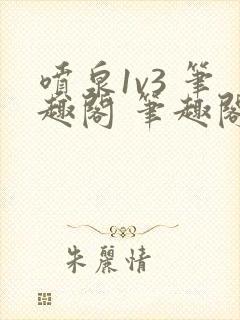 噴泉1v3 筆
趣閣 筆趣閣
朱麗情